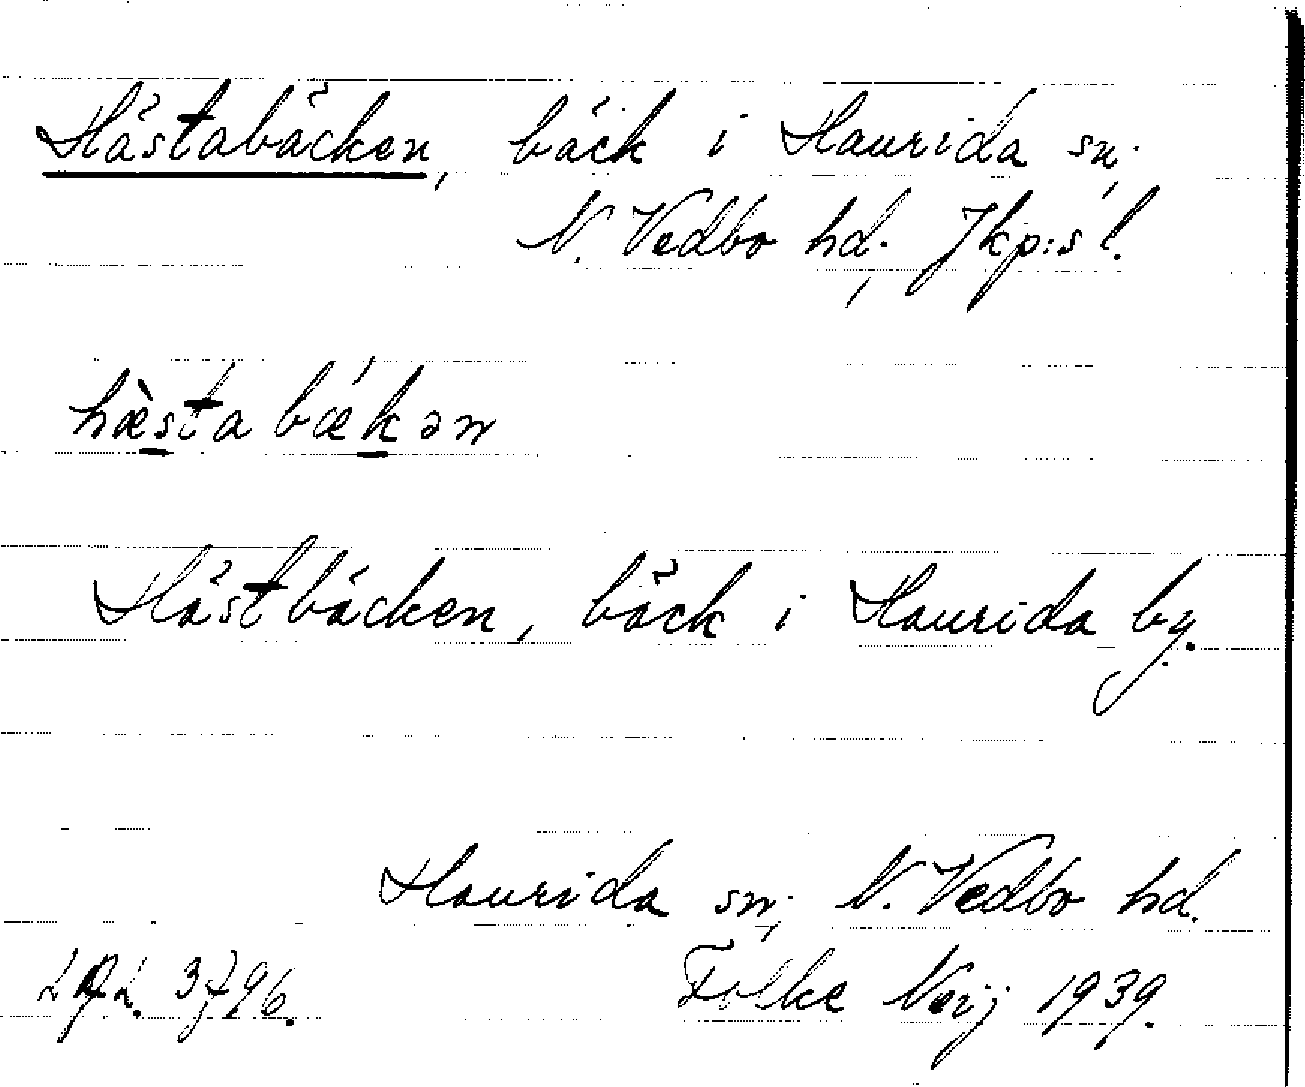 Hästabäcken, bäck i Haurida sn.,
N. Vedbo hd., Jkp:s l.
hæ̀sta bǽkən
Hästbäcken, bäck i Haurida by.
Haurida sn., N. Vedbo hd.
3796. Folke Neij 1939.